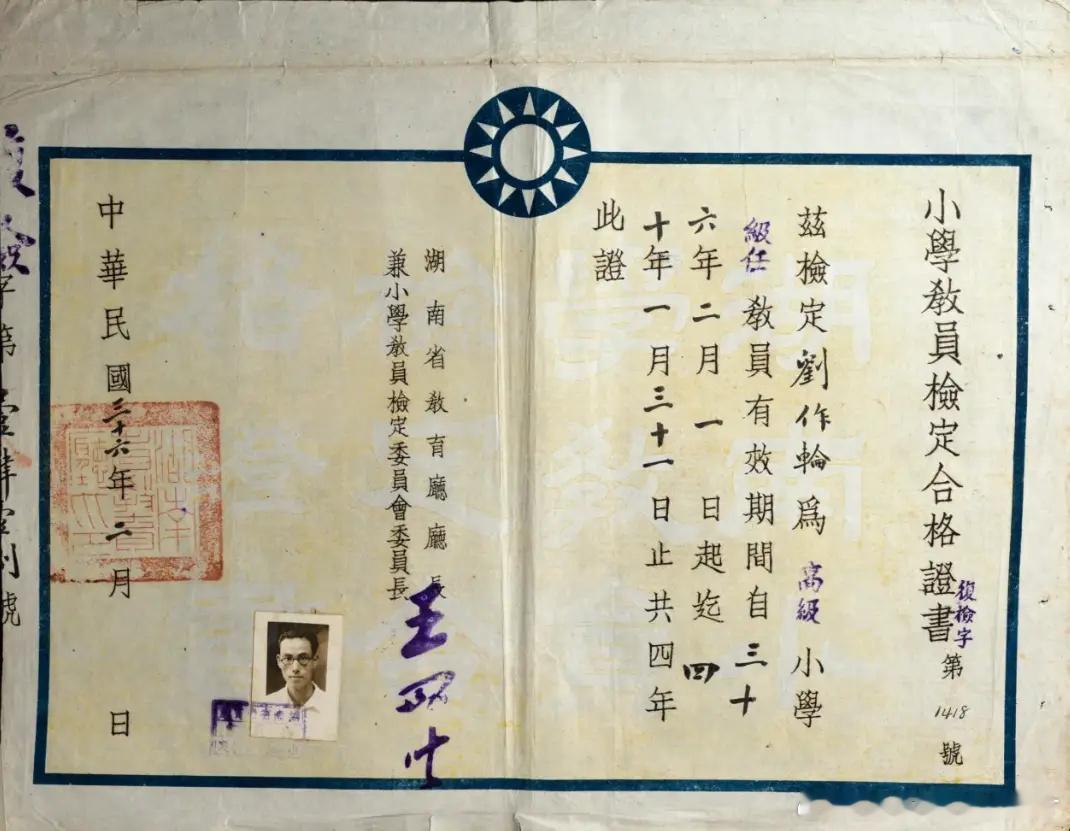 小學敎員檢定合格證書
復檢字
第1418號
茲檢定劉作輪爲高級小學
級任敎員有效期間自三十
六年二月一日起迄四
十年一月三十一日止共四年
此證
湖南省敎育廳廳長
兼小學敎員檢定委員會委員長
中華民國三十六年二月 日